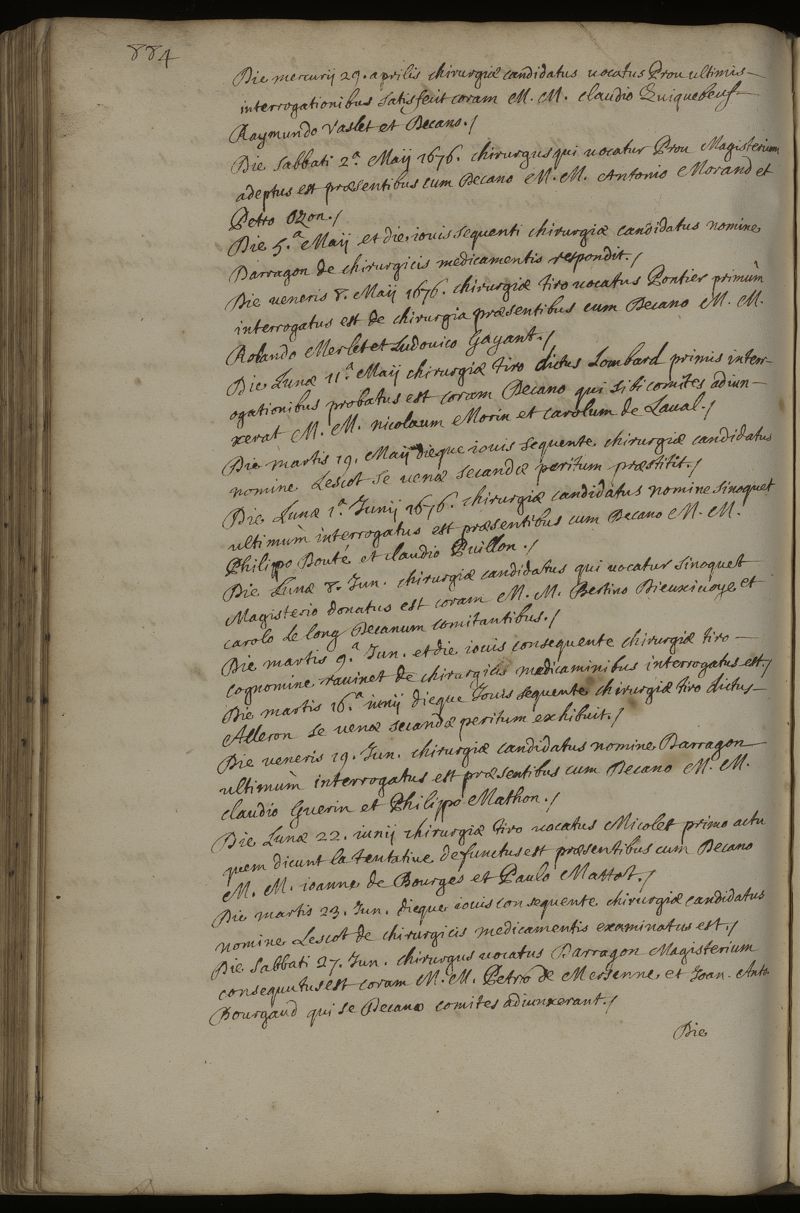 884
Die mercurij 29. aprilis chirurgiæ candidatus uocatus Prou ultimis
interrogationibus satisfecit coram M. M. claudio Quiquebeuf
Raymundo Vaslet et Decano./
Die sabbati 2.a Maij 1676. chirurgus qui uocatur Prou Magisterium
adeptus est præsentibus cum Decano M. M. Antonio Morand et
Petro Ozon./
Die 5.a Maij et die iouis sequenti chirurgiæ candidatus nomine
Barragon de chirurgicis medicamentis respondit./
Die ueneris 8. Maij 1676. chirurgiæ tiro uocatus Pontier primùm
interrogatus est de chirurgia præsentibus cum Decano M. M.
Rolando Merlet et Ludouico Gayant./
Die Lunæ 11.a Maij chirurgiæ tiro dictus Lombard primis inter-
ogationibus probatus est coram Decano qui sibi comites adiun-
xerat M. M. nicolaum Morin et carolum de Laual./
Die martis 19. Maij dieque iouis sequente chirurgiæ candidatus
nomine Lescot se uenæ secandæ peritum præstitit./
Die Lunæ 1.a Junij 1676. chirurgiæ candidatus nomine sinoquet
ultimùm interrogatus est præsentibus cum Decano M. M.
Philippo Bouté et claudio Puillon./
Die Lunæ 8. Jun. chirurgiæ candidatus qui uocatur sinoquet
Magisterio donatus est coram M. M. Bertino Dieuxiuoye et
carolo le long Decanum comitantibus./
Die martis 9.a Jun. et die iouis consequente chirurgiæ tiro
cognomine rauinet de chirurgicis medicaminibus interrogatus est./
Die martis 16.a iunij dieque Jouis sequente chirurgiæ tiro dictus
Alleron se uenæ secandæ peritum exhibuit./
Die ueneris 19. Jun. chirurgiæ candidatus nomine Barragon
ultimùm interrogatus est præsentibus cum Decano M. M.
claudio Guerin et Philippo Mathon./
Die Lunæ 22. iunij chirurgiæ tiro uocatus Micolet primo actu
quem dicunt la tentatiue defunctus est præsentibus cum Decano
M. M. ioanne de Bourges et Paulo Mattot./
Die martis 23. Jun. dieque iouis consequente chirurgiæ candidatus
nomine Lescot de chirurgicis medicamentis examinatus est./
Die sabbati 27. Jun. chirurgus uocatus Barragon Magisterium
consequutus est coram M. M. Petro de Mersenne et Joan. Anto.
Bourgaud qui se Decano comites adiunxerant./
Die